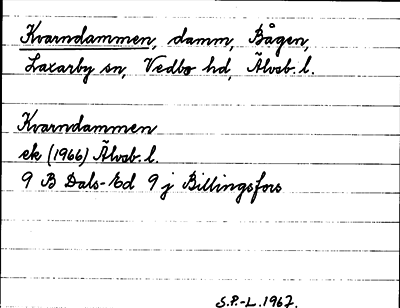 Kvarndammen, damm, Bågen,
Laxarby sn, Vedbo hd, Älvsb. l.
Kvarndammen
ek (1966) Älvsb. l.
9 B Dals-Ed 9 j Billingsfors
S.P.-L. 1967.